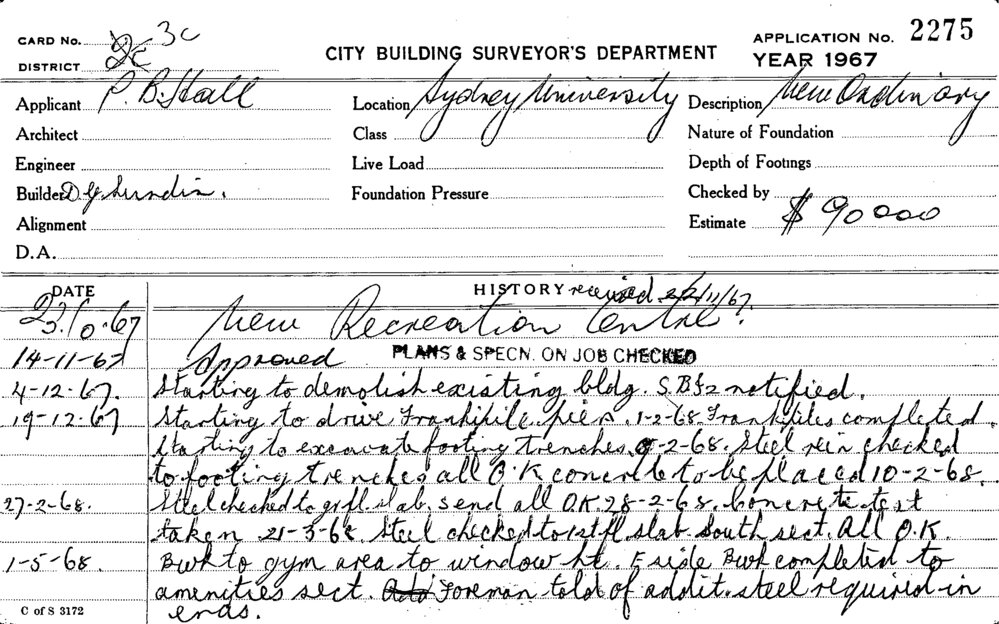 CARD No. 3c
DISTRICT 2c
CITY BUILDING SURVEYOR'S DEPARTMENT
APPLICATION No. 2275
YEAR 1967
Applicant P. B. Hall
Location Sydney University
Description New Ordinary
Architect
Class
Nature of Foundation
Engineer
Live Load
Depth of Footings
Builder D. G. Sundin.
Foundation Pressure
Checked by
Alignment
Estimate $ 90000
D.A.
DATE
HISTORY received 2/11/67
23.10.67 New Recreation Centre.
14-11-67 Approved PLANS & SPECN. ON JOB CHECKED
4-12-67. Starting to demolish existing bldg. notified.
19-12-67 Starting to drive Frankipile piers. 1-2-68. Frankpiles completed.
Starting to excavate footing trenches. 9-2-68. Steel rein checked
to footing trenches all O.K concrete to be placed 10-2-68.
27-2-68. Steel checked to gr fl. slab. send all O.K. 28-2-68. Concrete test
taken 21-3-68 Steel checked to 1st fl slab South sect. All O.K.
1-5-68. Bwk to gym area to window ht. E side Bwk completed to
amenities sect. Foreman told of addit. steel required in
ends.
C of S 3172